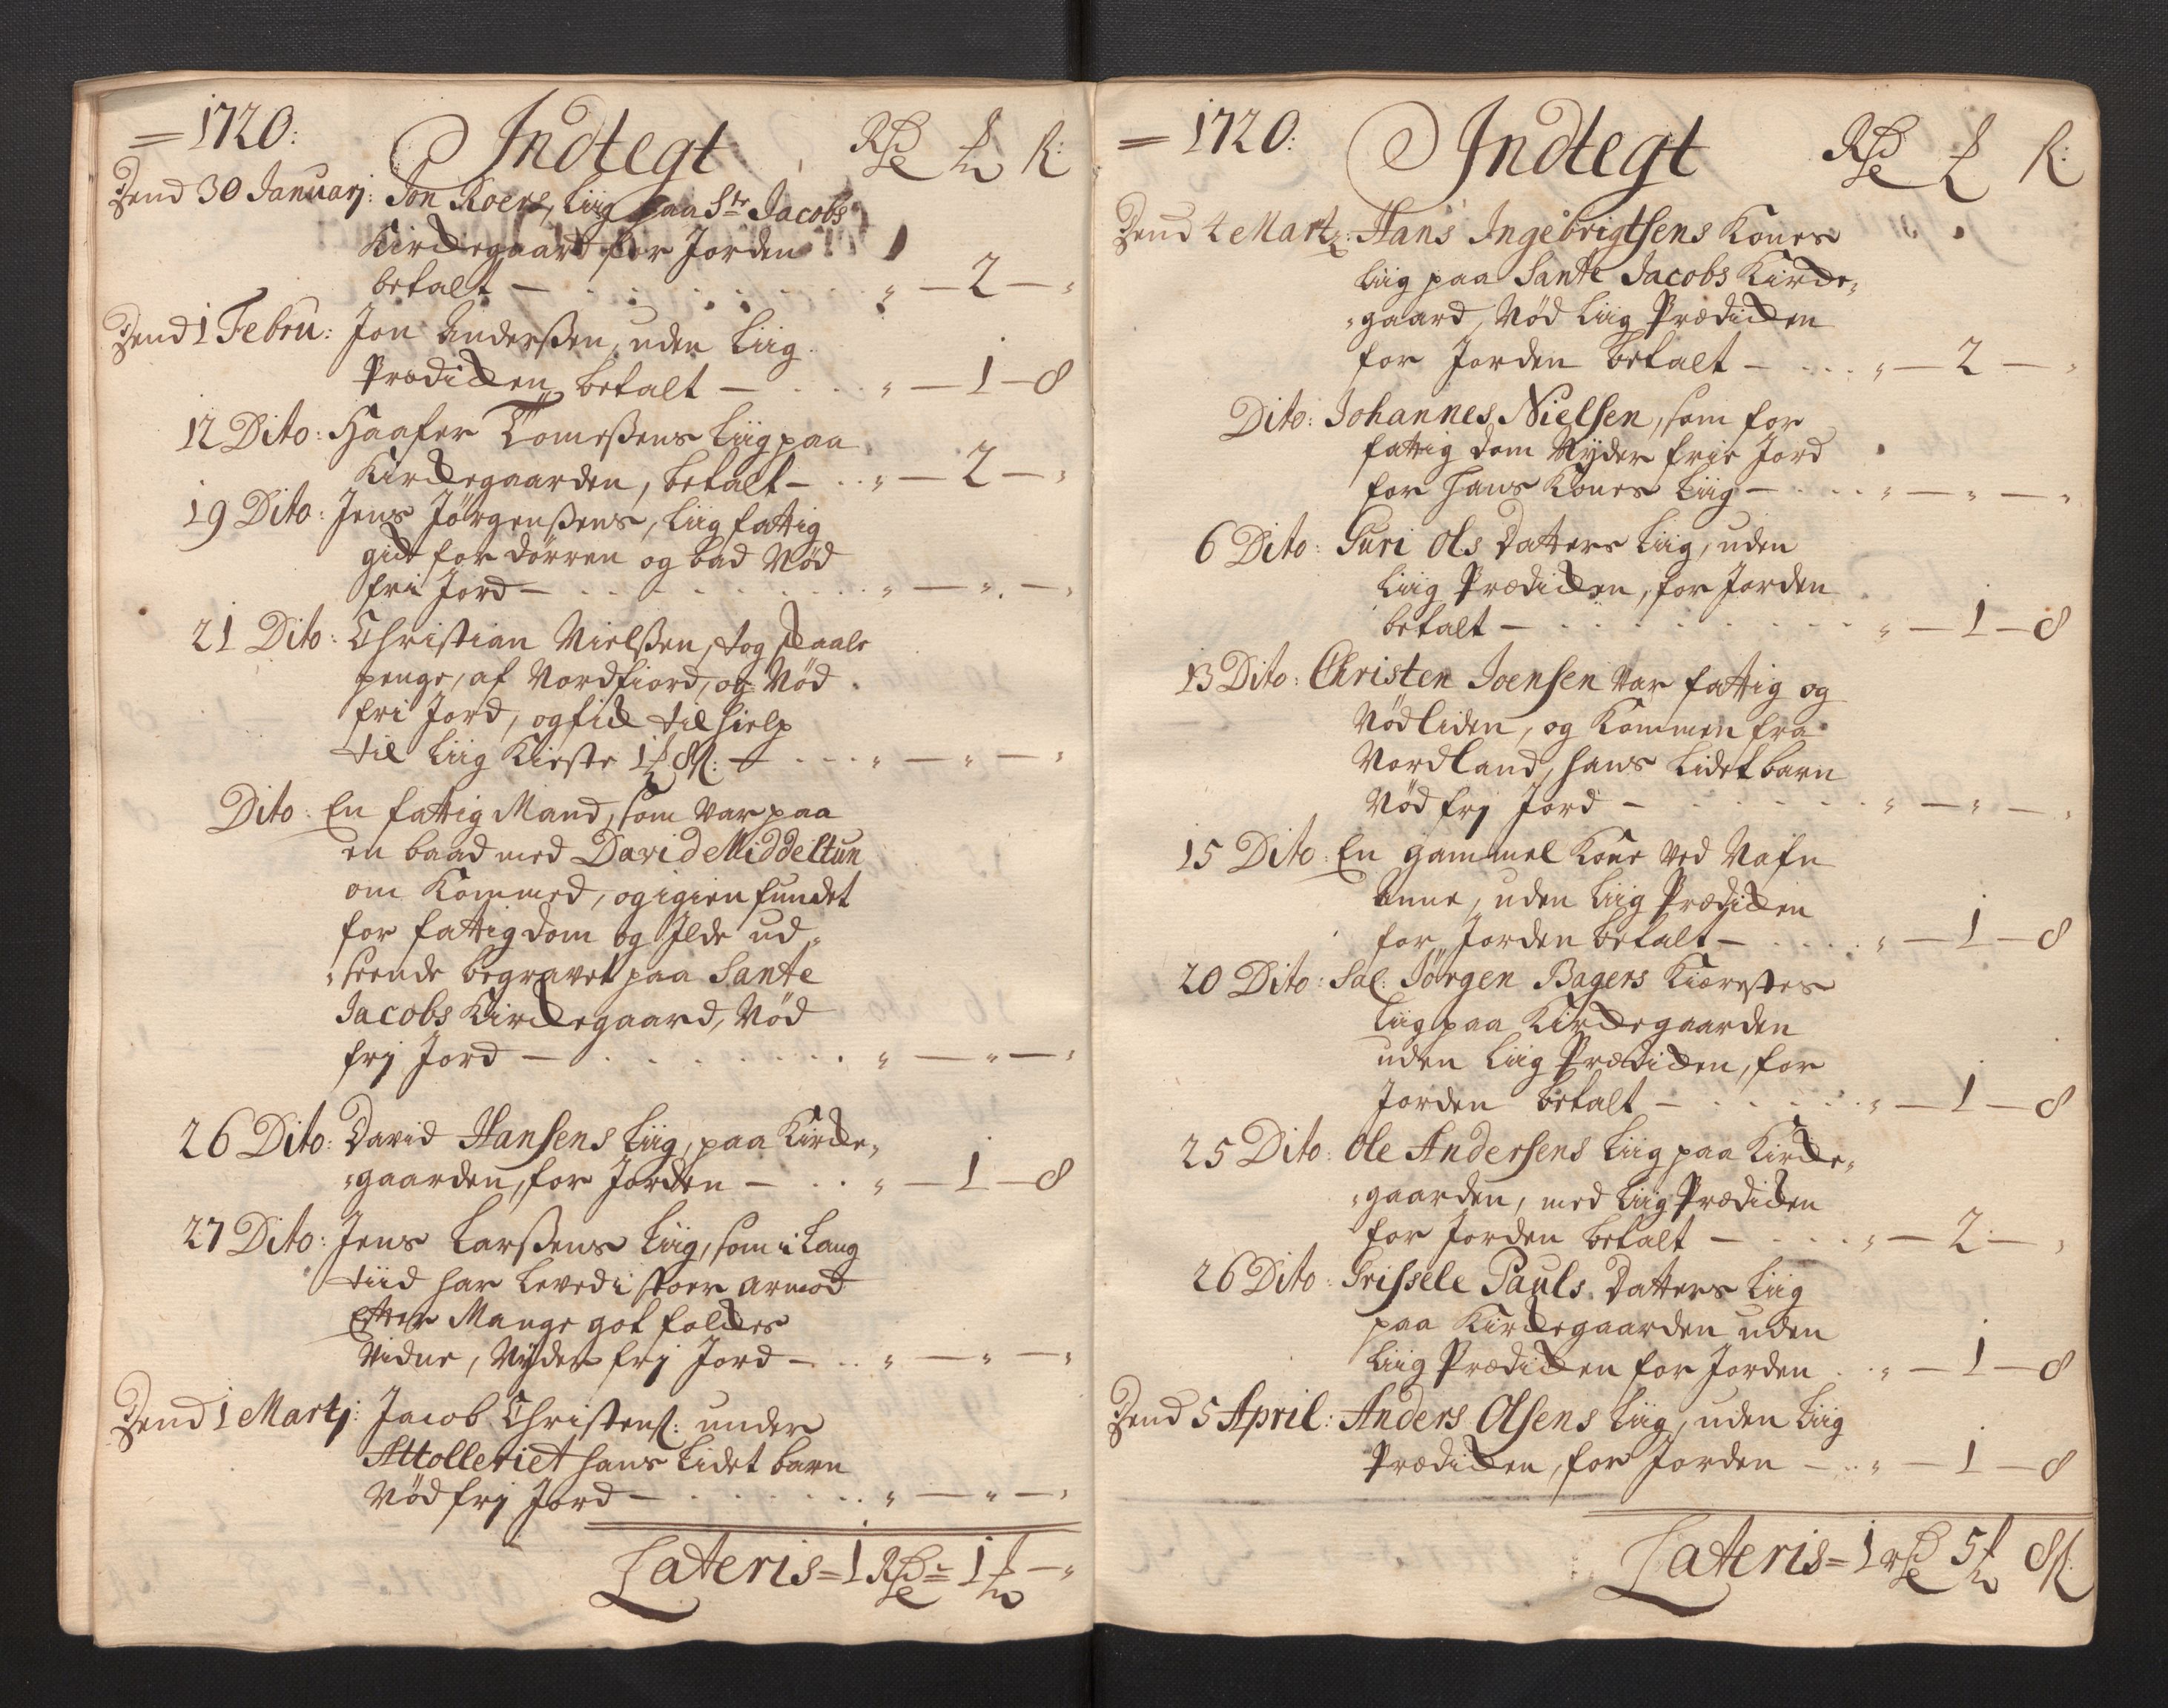 = 1720: Indtegt Rdr ₰ ß:
Dend 30 Januarj: Jon Roers, Liig paa Str Jacobs
Kirckegaard for Jorden
betalt — . . . . . . . . . „ — 2 — „
Dend 1 Febru: Jon Anderßen, uden Liig
Prædicken betalt — . . . . „ — 1 — 8
12 Dito: Haafer Tomeßens Liig paa
Kirckegaarden, betalt — . . „ — 2 — „
19 Dito: Jens Jörgenßens, Liig fattig
gick for dörren og bad Nöd
fri Jord — . . . . . . . . „ — „ — „
21 Dito: Christian Nielßen, tog skaale
penge, af Nordfiord, og Nöd
fri Jord, og fick til hielp
til Liig Kieste 1 ₰ 8 ß: — . . . „ — „ — „
Dito: En fattig Mand, som var paa
en baad med David Middeltun
om Kommed, og igien fundet
for fattigdom og Ilde ud„
„seende begravet paa Sante
Jacobs Kirckegaard, Nöd
frj Jord — . . . . . . . „ — „ — „
26 Dito: David Hansens Liig, paa Kircke„
„gaarden, for Jorden — . . „ — 1 — 8
27 Dito: Jens Larßens Liig, som i Lang
tiid har Leved i stoer armod
Etter Mange got folckes
Vidne, Nyder frj Jord — . . „ — „ — „
Dend 1 Martj: Jacob Christens: under
Attolleriet hans Lidet barn
Nöd frj Jord — . . . . . . „ — „ — „
Lateris = 1 Rdr = 1 ₰ — „
= 1720: Indtegt Rdr ₰ ß:
Dend 4 Martj: Hans Ingebrigtsens Kones
Liig paa Sante Jacobs Kircke„
„gaard, Nöd Liig Prædicken
for Jorden betalt — . . . „ — 2 — „
Dito: Johannes Nielsen, som for
fattigdom Nyder frie Jord
for hans Kones Liig — . . . „ — „ — „
6 Dito: Guri Ols Datters Liig, uden
Liig Prædicken, for Jorden
betalt — . . . . . . . . „ — 1 — 8
13 Dito: Christen Joensen var fattig og
Nödliden, og Kommen fra
Nordland, hans Lidet barn
Nöd frj Jord — . . . . . . „ — „ — „
15 Dito: En gammel Kone ved Nafn
Anne, uden Liig Prædicken
for Jorden betalt — . . . . „ — 1 — 8
20 Dito: Sal: Jörgen Bagers Kiærestes
Liig paa Kirckegaarden
uden Liig Prædicken, for
Jorden betalt — . . . . . „ — 1 — 8
25 Dito: Ole Andersens Liig paa Kircke„
„gaarden, med Liig Prædicken
for Jorden betalt — . . . . „ — 2 — „
26 Dito: Grissele Pauls Datters Liig
paa Kirckegaarden uden
Liig Prædicken for Jorden . . „ — 1 — 8
Dend 5 April: Anders Olsens Liig, uden Liig
Prædicken, for Jorden — . . „ — 1 — 8
Lateris = 1 rdr 5 ₰ 8 ß: